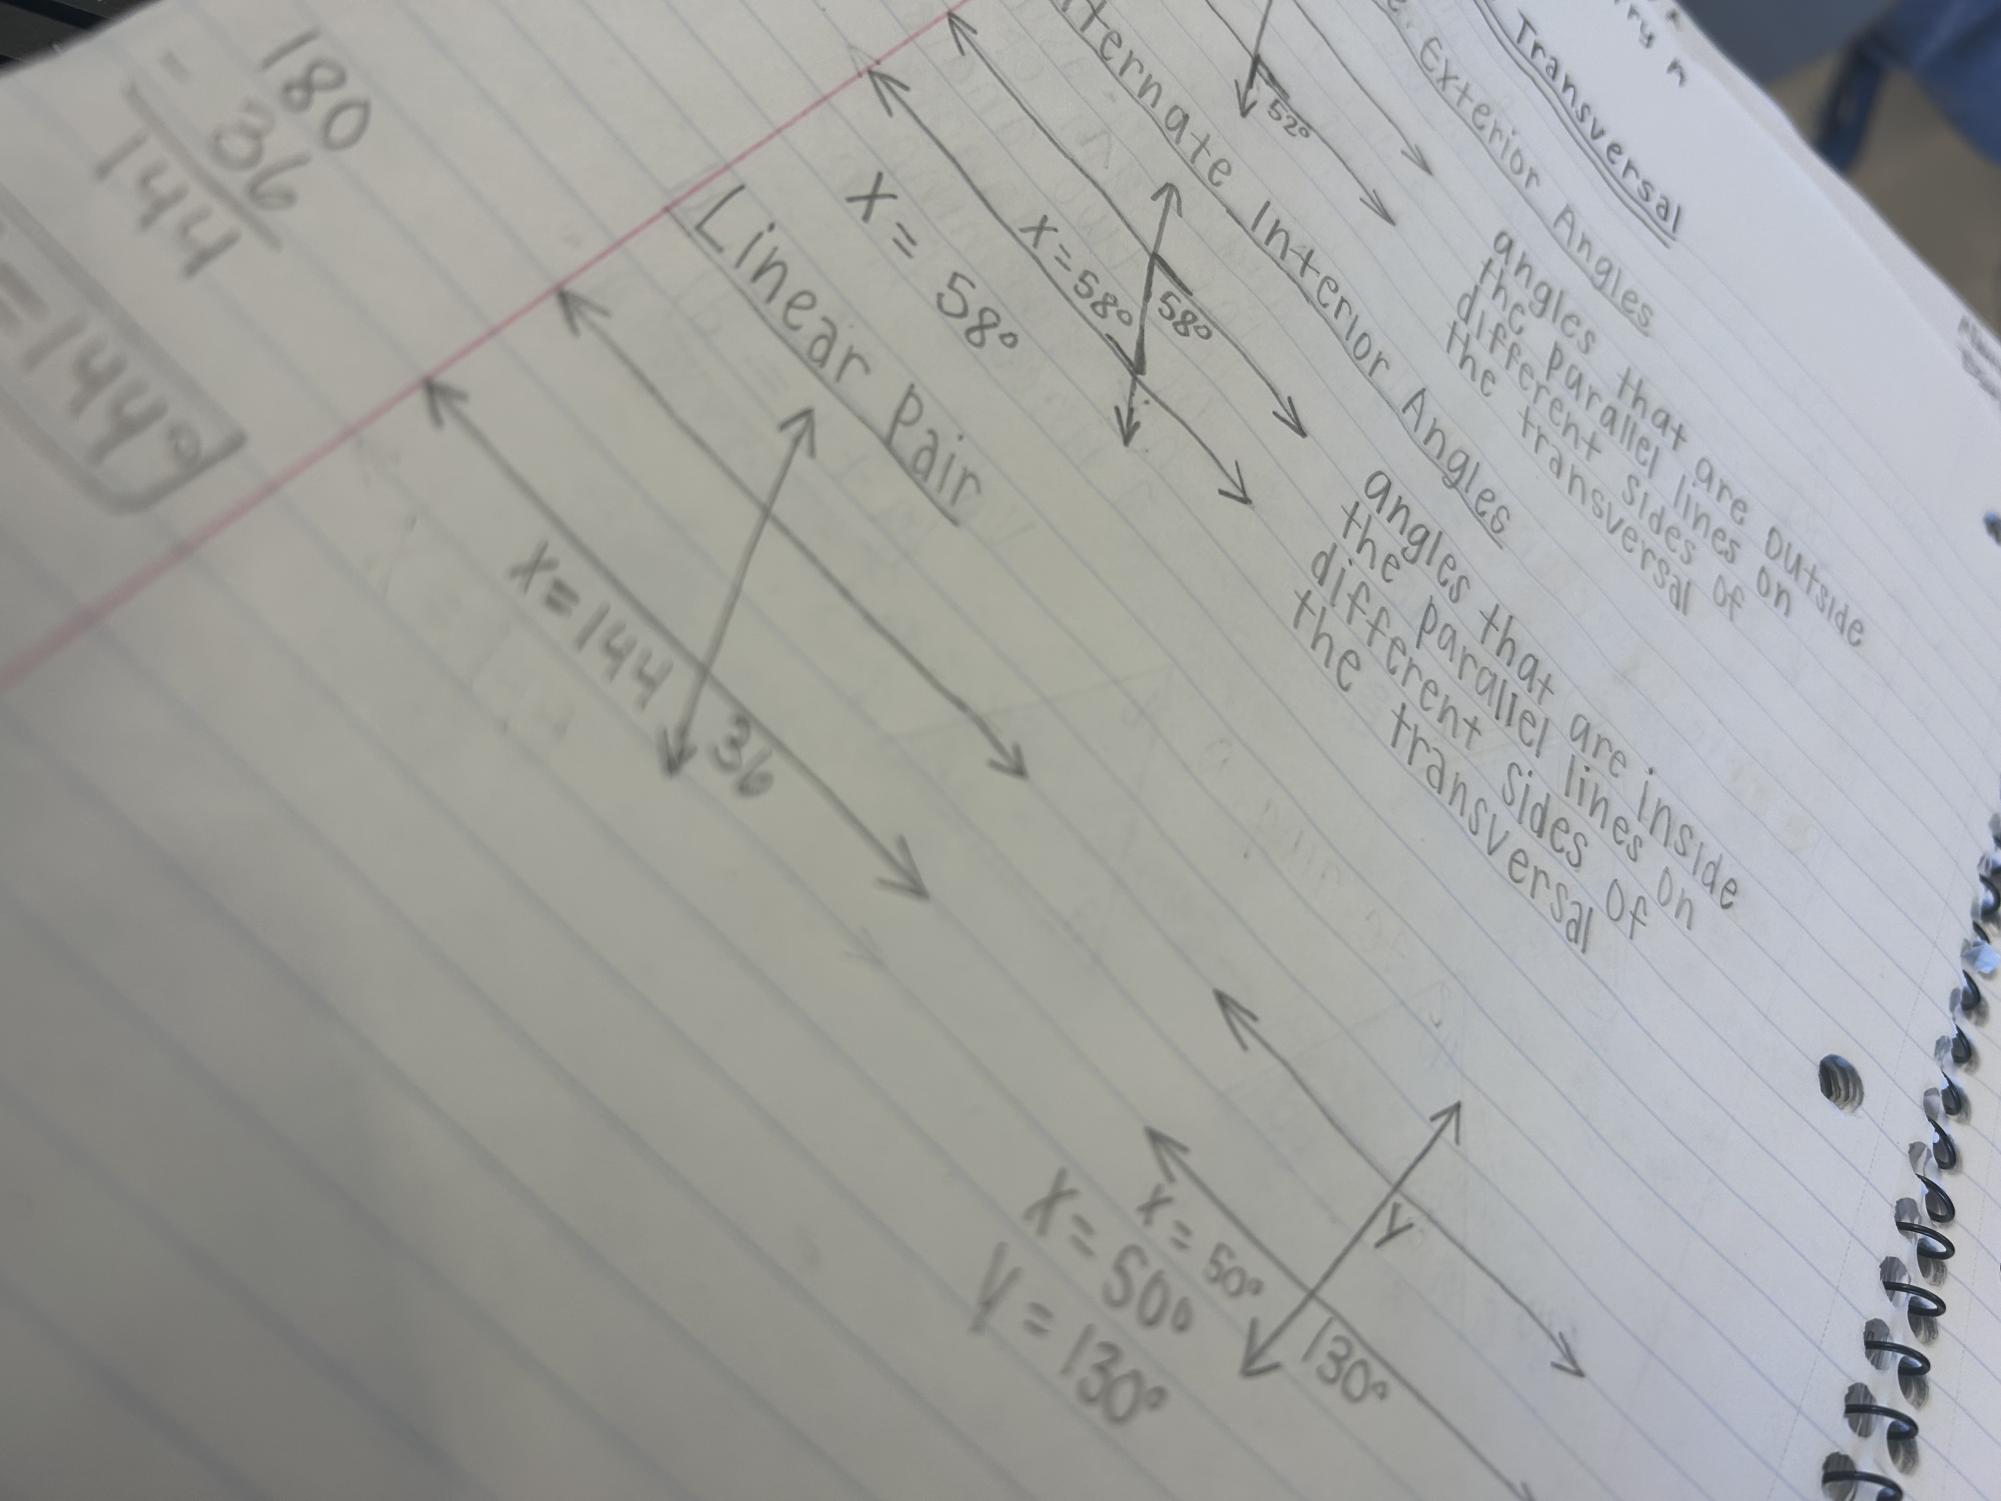 Transversal
Exterior Angles
angles that are outside
the parallel lines on
different sides of
the transversal
52°
Interior Angles
angles that are inside
the parallel lines on
different sides of
the transversal
58°
x=58°
x= 58°
Linear Pair
x=144
36
180
- 36
144
=144°
y
x=50°
130°
x=50°
y=130°